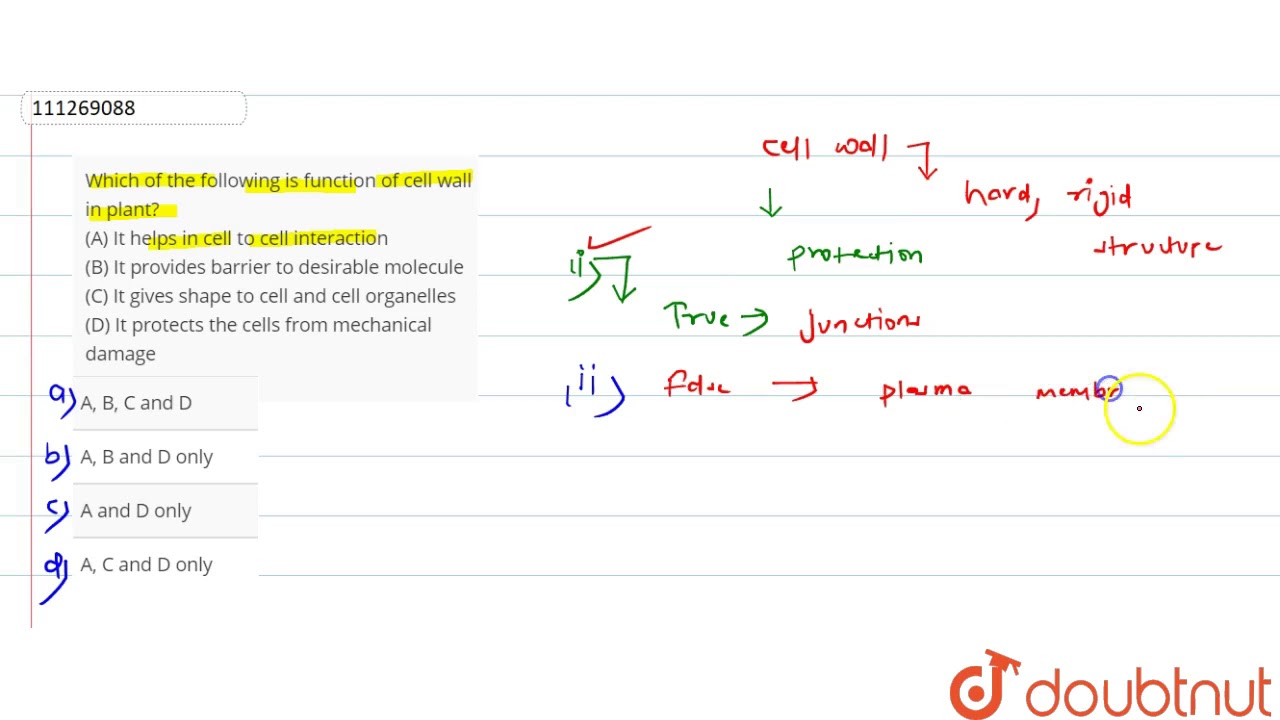 111269088
Which of the following is function of cell wall
in plant?
(A) It helps in cell to cell interaction
(B) It provides barrier to desirable molecule
(C) It gives shape to cell and cell organelles
(D) It protects the cells from mechanical
damage
a) A, B, C and D
b) A, B and D only
c) A and D only
d) A, C and D only
cell wall
hard, rigid
structure
protection
i)
True → Junctions
ii) false → plasma membr
doubtnut